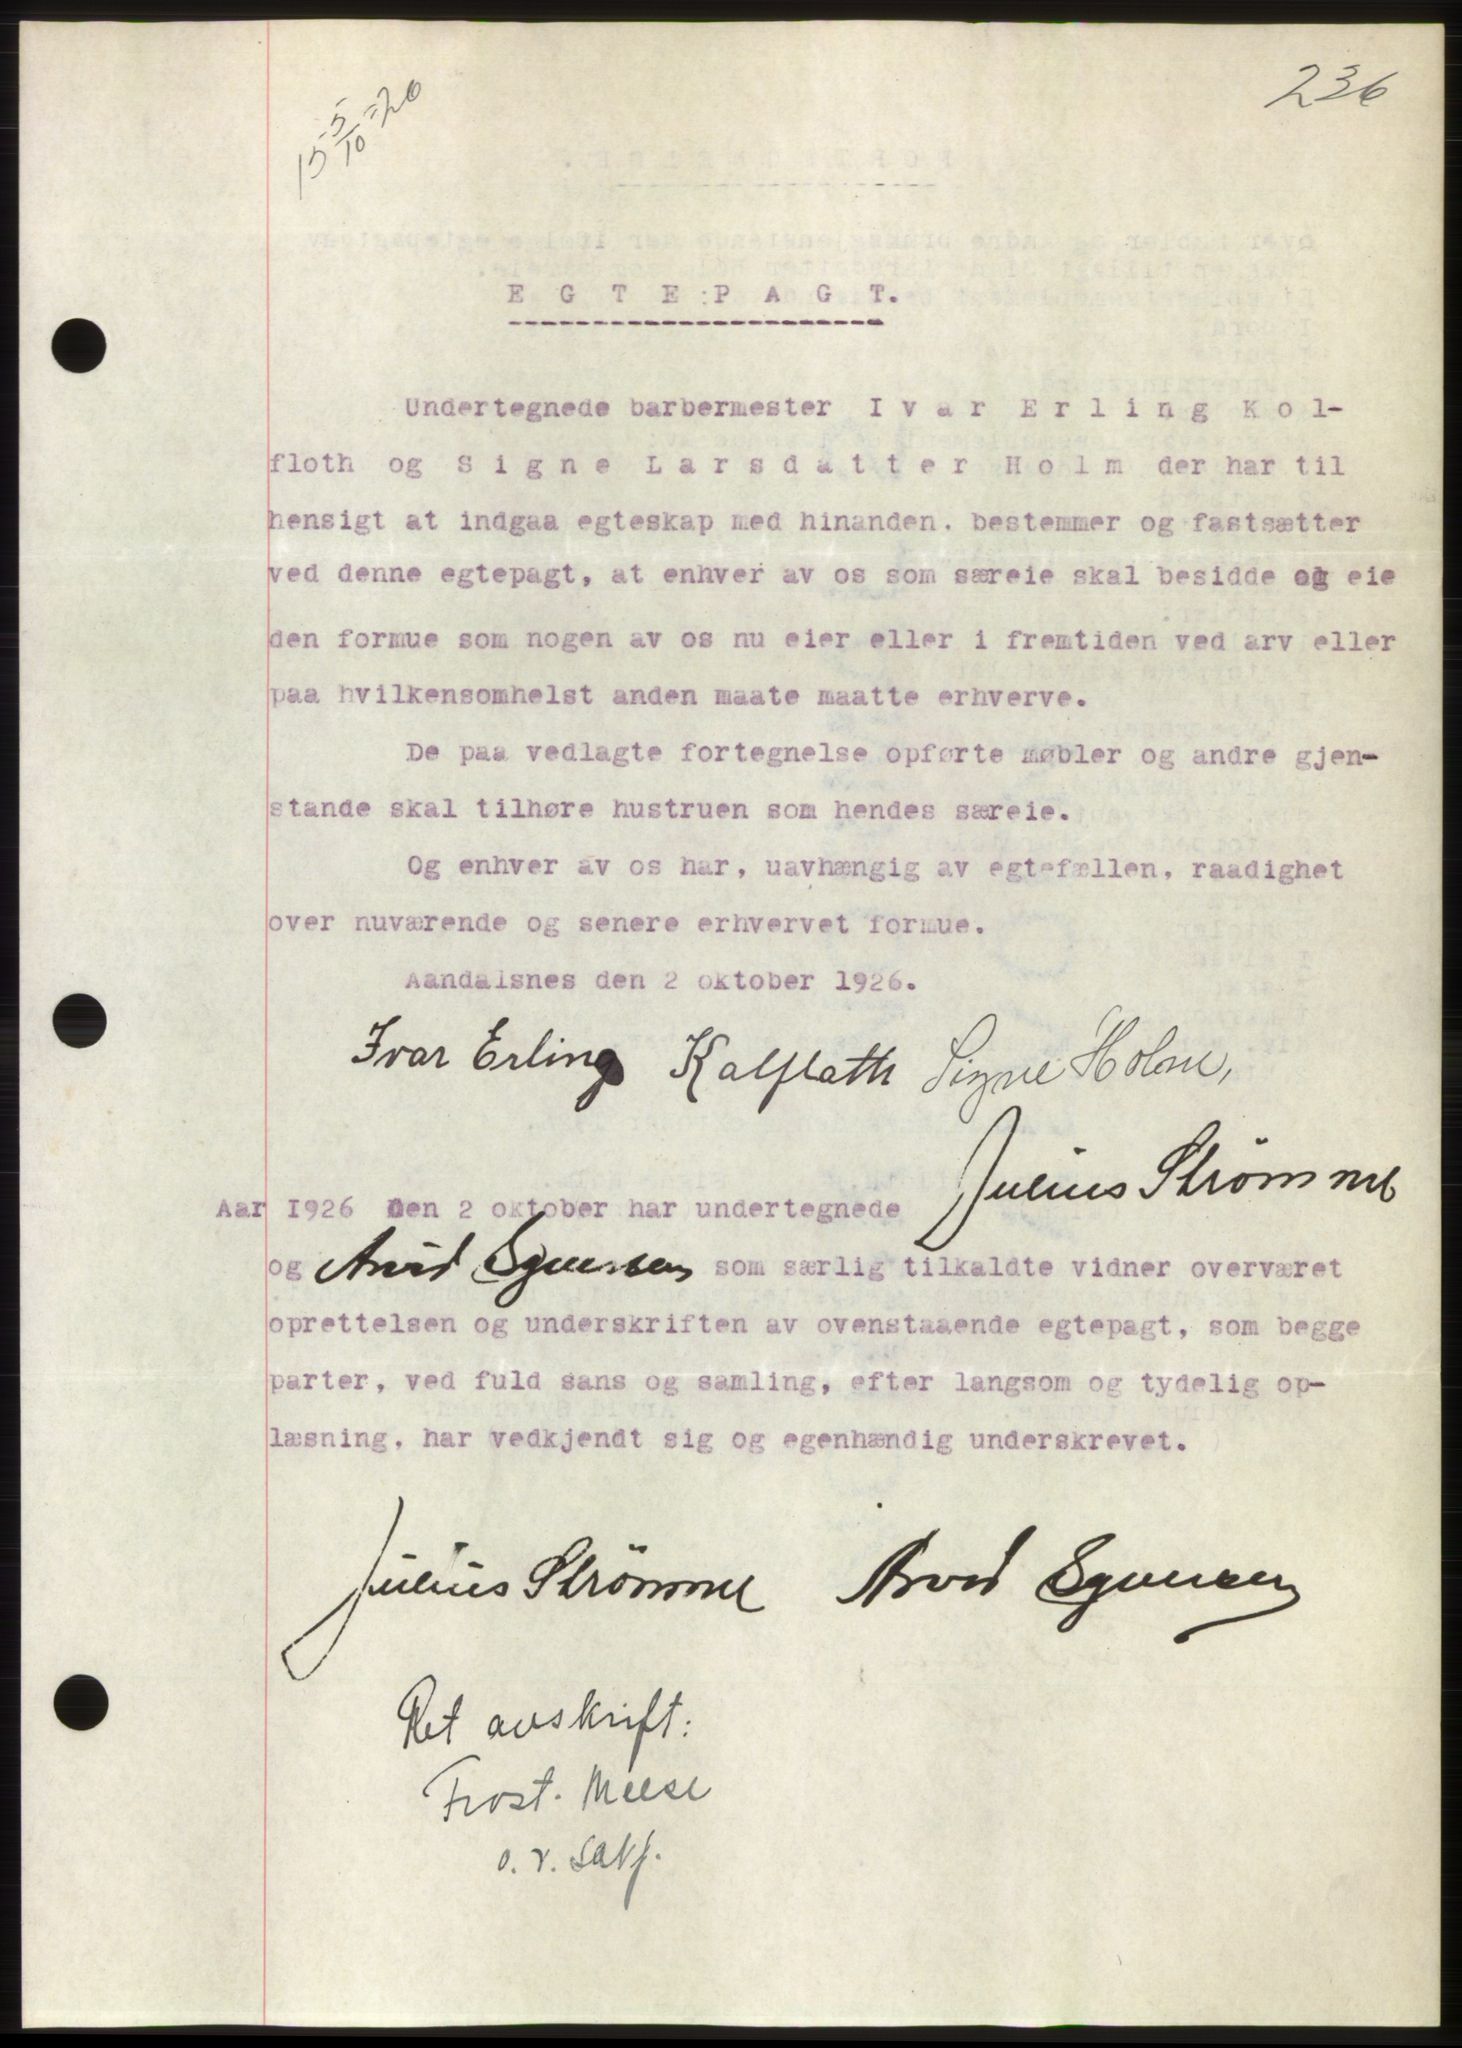 236
15 5/10 = 26
E G T E P A G T.
Undertegnede barbermester I v a r E r l i n g K o l-
floth og S i g n e L a r s d a t t e r H o l m der har til
hensigt at indgaa egteskap med hinanden. bestemmer og fastsætter
ved denne egtepagt, at enhver av os som særeie skal besidde og eie
den formue som nogen av os nu eier eller i fremtiden ved arv eller
paa hvilkensomhelst anden maate maatte erhverve.
De paa vedlagte fortegnelse opførte møbler og andre gjen-
stande skal tilhøre hustruen som hendes særeie.
Og enhver av os har, uavhængig av egtefællen, raadighet
over nuværende og senere erhvervet formue.
Aandalsnes den 2 oktober 1926.
Ivar Erling Kolfloth Signe Holm,
Julius Strömme
Aar 1926 Den 2 oktober har undertegnede
og Arvid som særlig tilkaldte vidner overværet
oprettelsen og underskriften av ovenstaaende egtepagt, som begge
parter, ved fuld sans og samling, efter langsom og tydelig op-
læsning, har vedkjendt sig og egenhændig underskrevet.
Julius Strömme Arvid
Ret avskrift:
Frost. Meese
o.r. sakf.